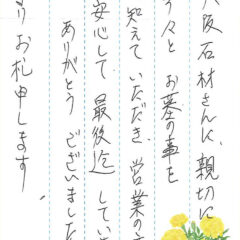 大阪石材さんに、親切に
々と お墓の事を
知えて いただき、営業の
安心して、最後迄 してい
ありがとう ございました
りお札申します